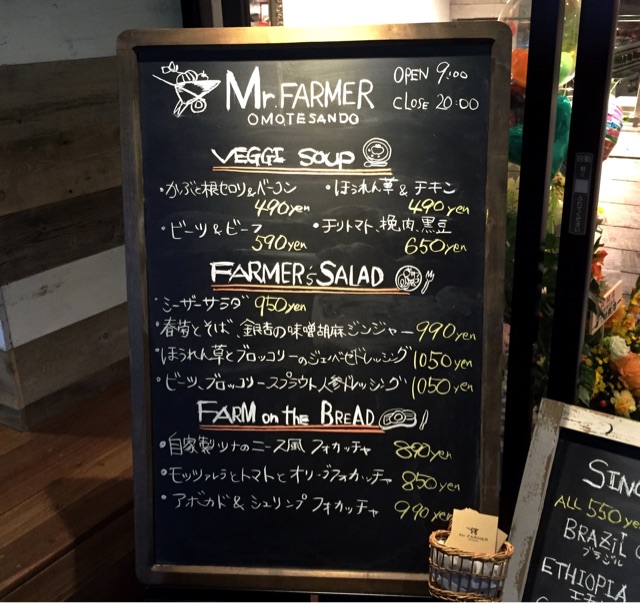 Mr. FARMER
OMOTESANDO
OPEN 9:00
CLOSE 20:00
VEGGI SOUP
・かぶと根セロリ&ベーコン 490yen
・ほうれん草&チキン 490yen
・ビーツ&ビーフ 590yen
・チリトマト、挽肉、黒豆 650yen
FARMER'S SALAD
・シーザーサラダ 950yen
・春菊とそば 銀杏の味噌胡麻ジンジャー 990yen
・ほうれん草とブロッコリーのジェノベーゼドレッシング 1050yen
・ビーツ、ブロッコリースプラウト人参ドレッシング 1050yen
FARM on the BREAD
・自家製ツナのニース風フォカッチャ 890yen
・モッツァレラとトマトとオリーブフォカッチャ 850yen
・アボカド&シュリンプフォカッチャ 990yen
Mr. FARMER
SING
ALL 550y
BRAZIL
ブラジル
ETHIOPIA